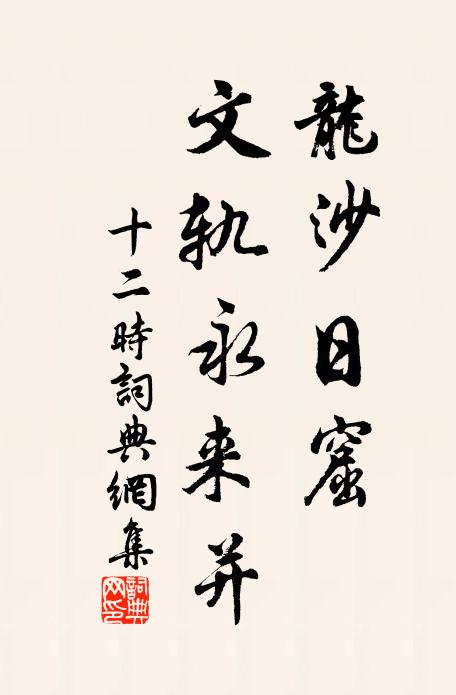 龍沙日窟
文軌永来并
十二時詞典網集
詞典網印